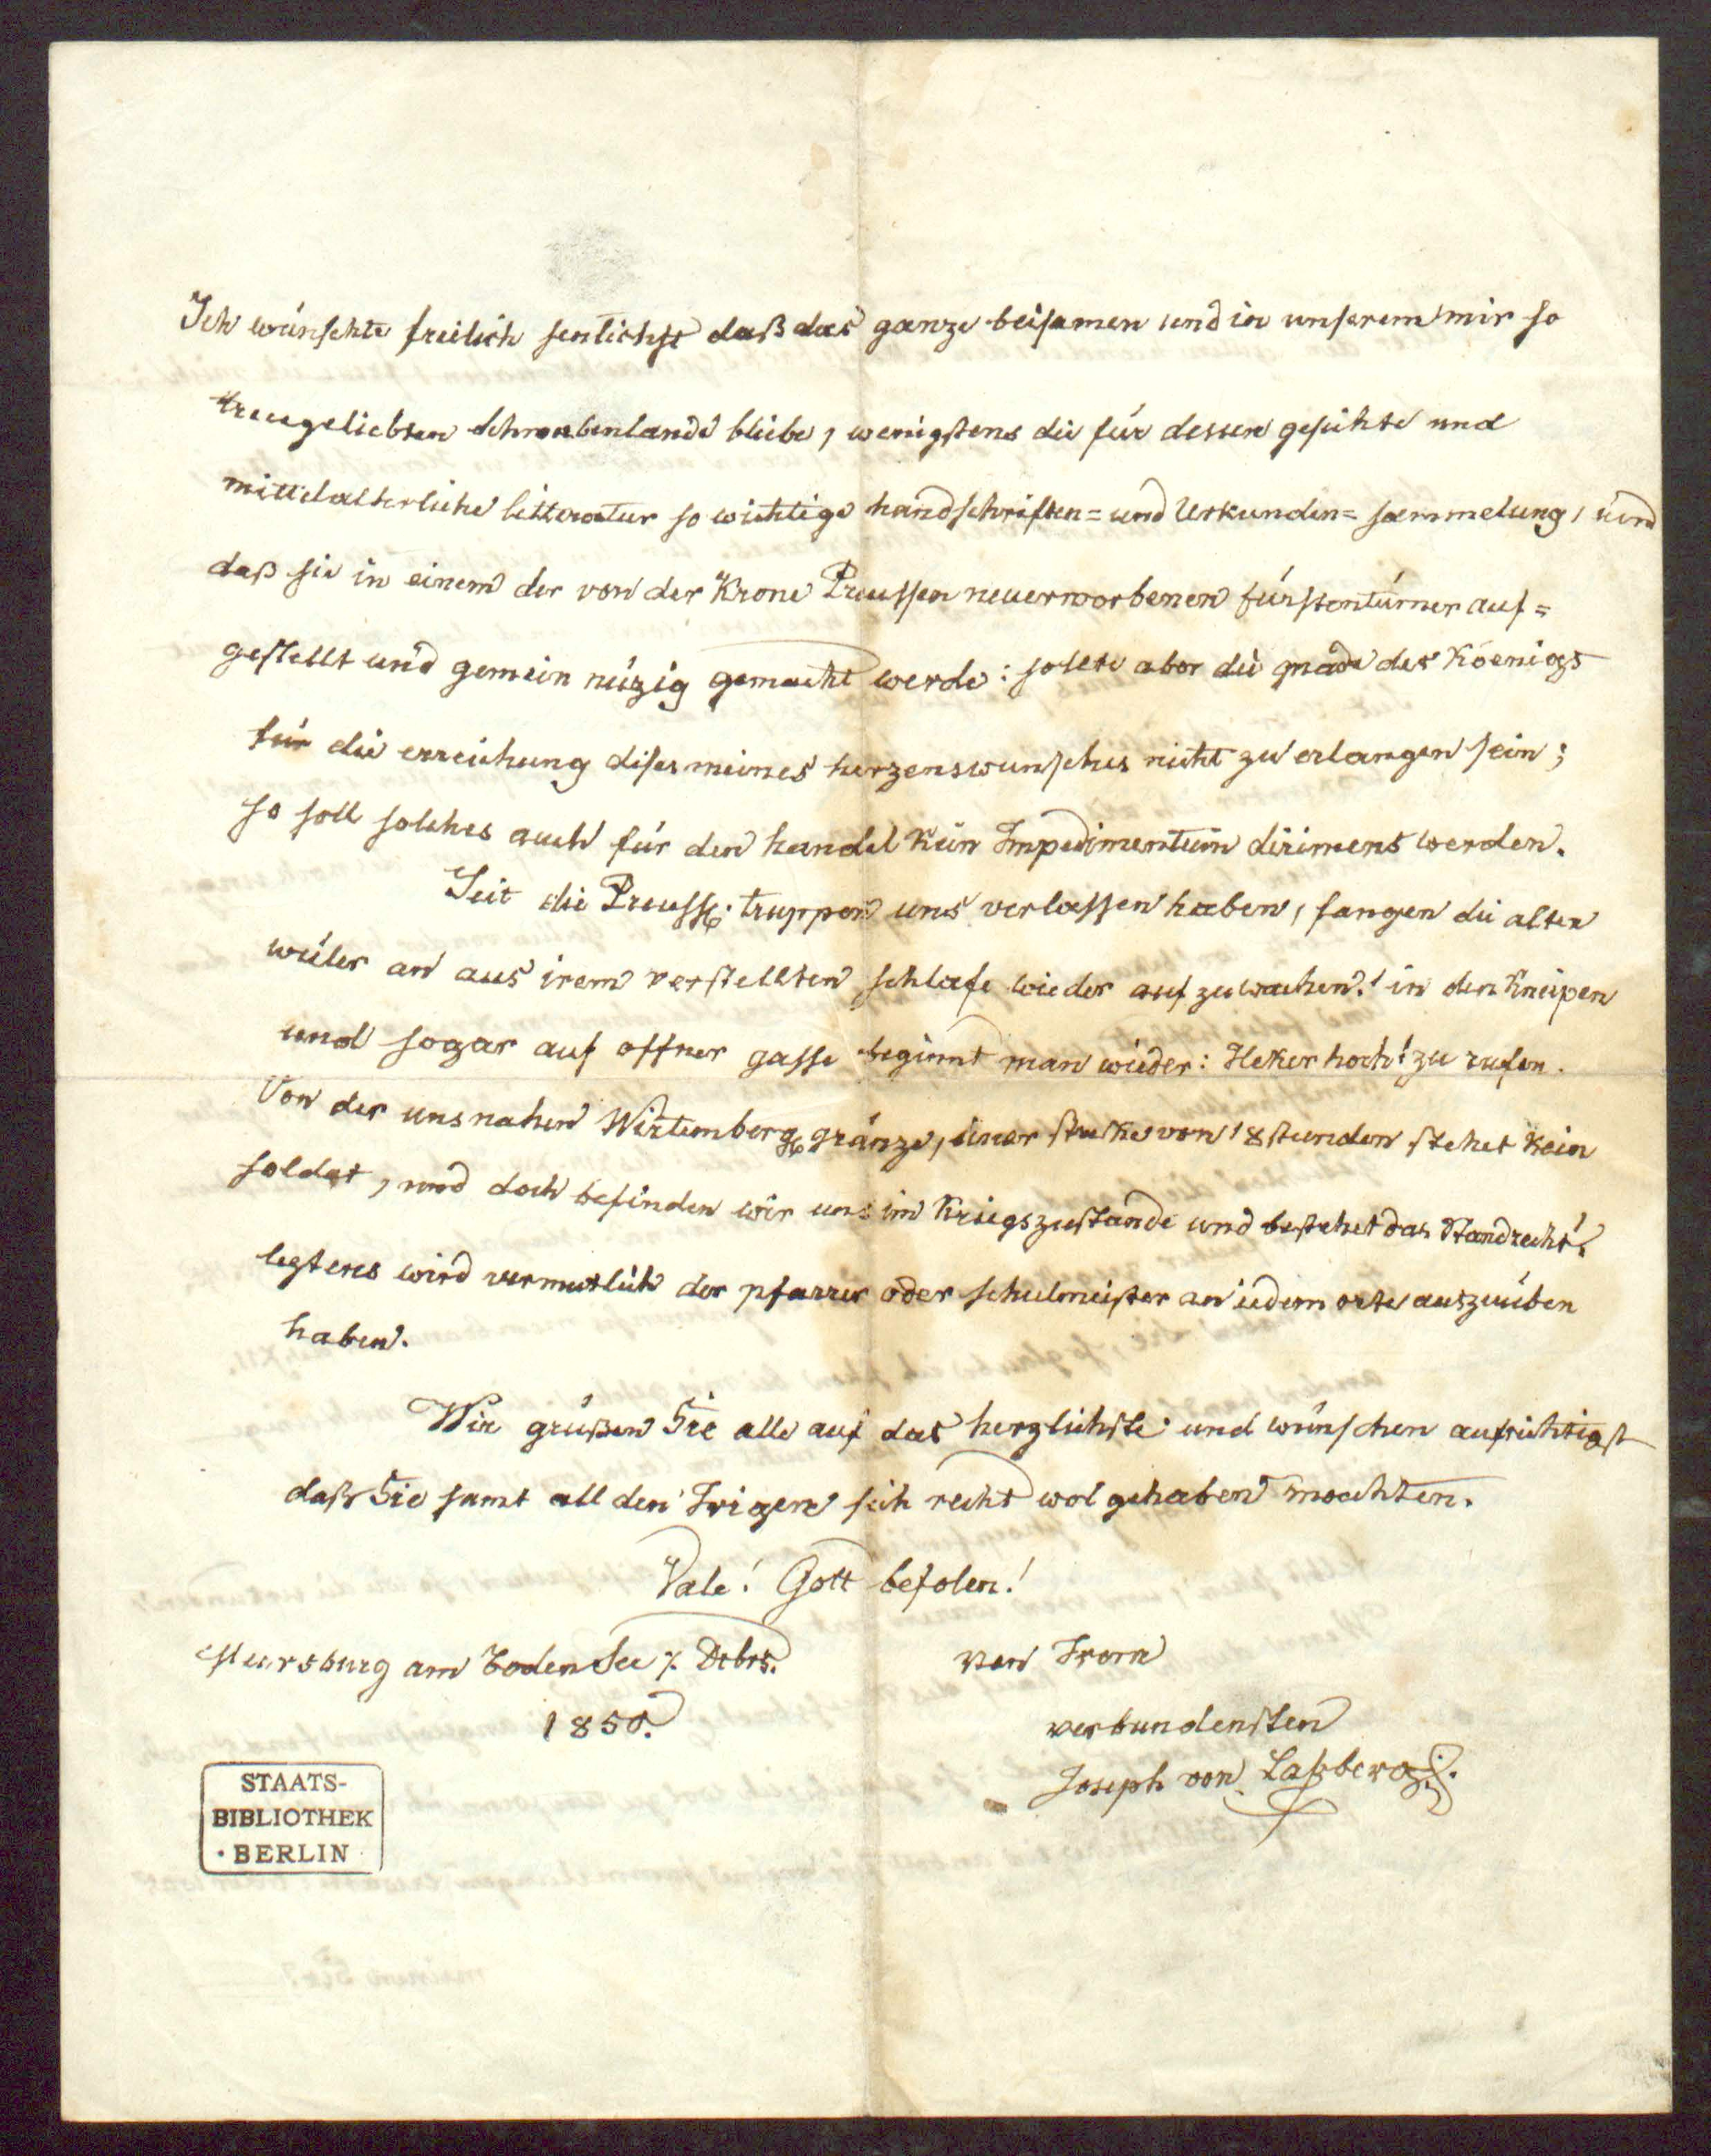 Ich wünschte freilich senlichst daß das ganze beisamen und in unserem mir so
treugeliebten Schwabenlande bliebe, wenigstens die für dessen geschichte und
mittelalterliche litteratur so wichtige handschriften= und Urkunden= sammelung, und
daß sie in einem der von der Krone Preussen neuerworbenen fürstentümer auf=
gestellt und gemein nüzig gemacht werde: sollte aber die gnade des Koenigs
für die erreichung dises meines herzenswunsches nicht zu erlangen sein;
so soll solches auch für den handel kein Impedimentum dirimens werden.
Seit die Preuss. truppen uns verlassen haben, fangen die alten
wüler an aus irem verstellten schlafe wieder auf zuwachen! in den Kneipen
und sogar auf offner gasse beginnt man wieder: Heker hoch! zu rufen.
Von der uns nahen Wirtemberg. gränze, einer streke von 18 stunden stehet kein
soldat, und doch befinden wir uns im Kriegszustande und bestehet das Standrecht!
lezteres wird vermutlich der pfarrer oder schulmeister an iedem orte auszuüben
haben.
Wir grüßen Sie alle auf das herzlichste und wünschen aufrichtigst
daß Sie samt all den Irigen sich recht wol gehaben moechten.
Vale! Gott befolen!
Meersburg am BodenSee 7. Dcbrs.
1850.
von Irem
verbundensten
Joseph von Laßberg.
STAATS-
BIBLIOTHEK
· BERLIN ·